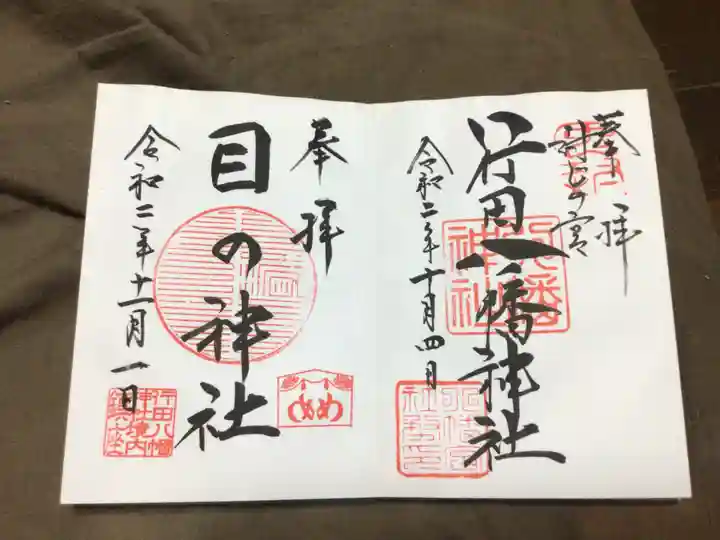 奉拝
封じの宮
行田八幡神社
令和二年十月四日
奉拝
目の神社
令和二年十一月一日
めめ
行田八幡
神社境内
鎮座